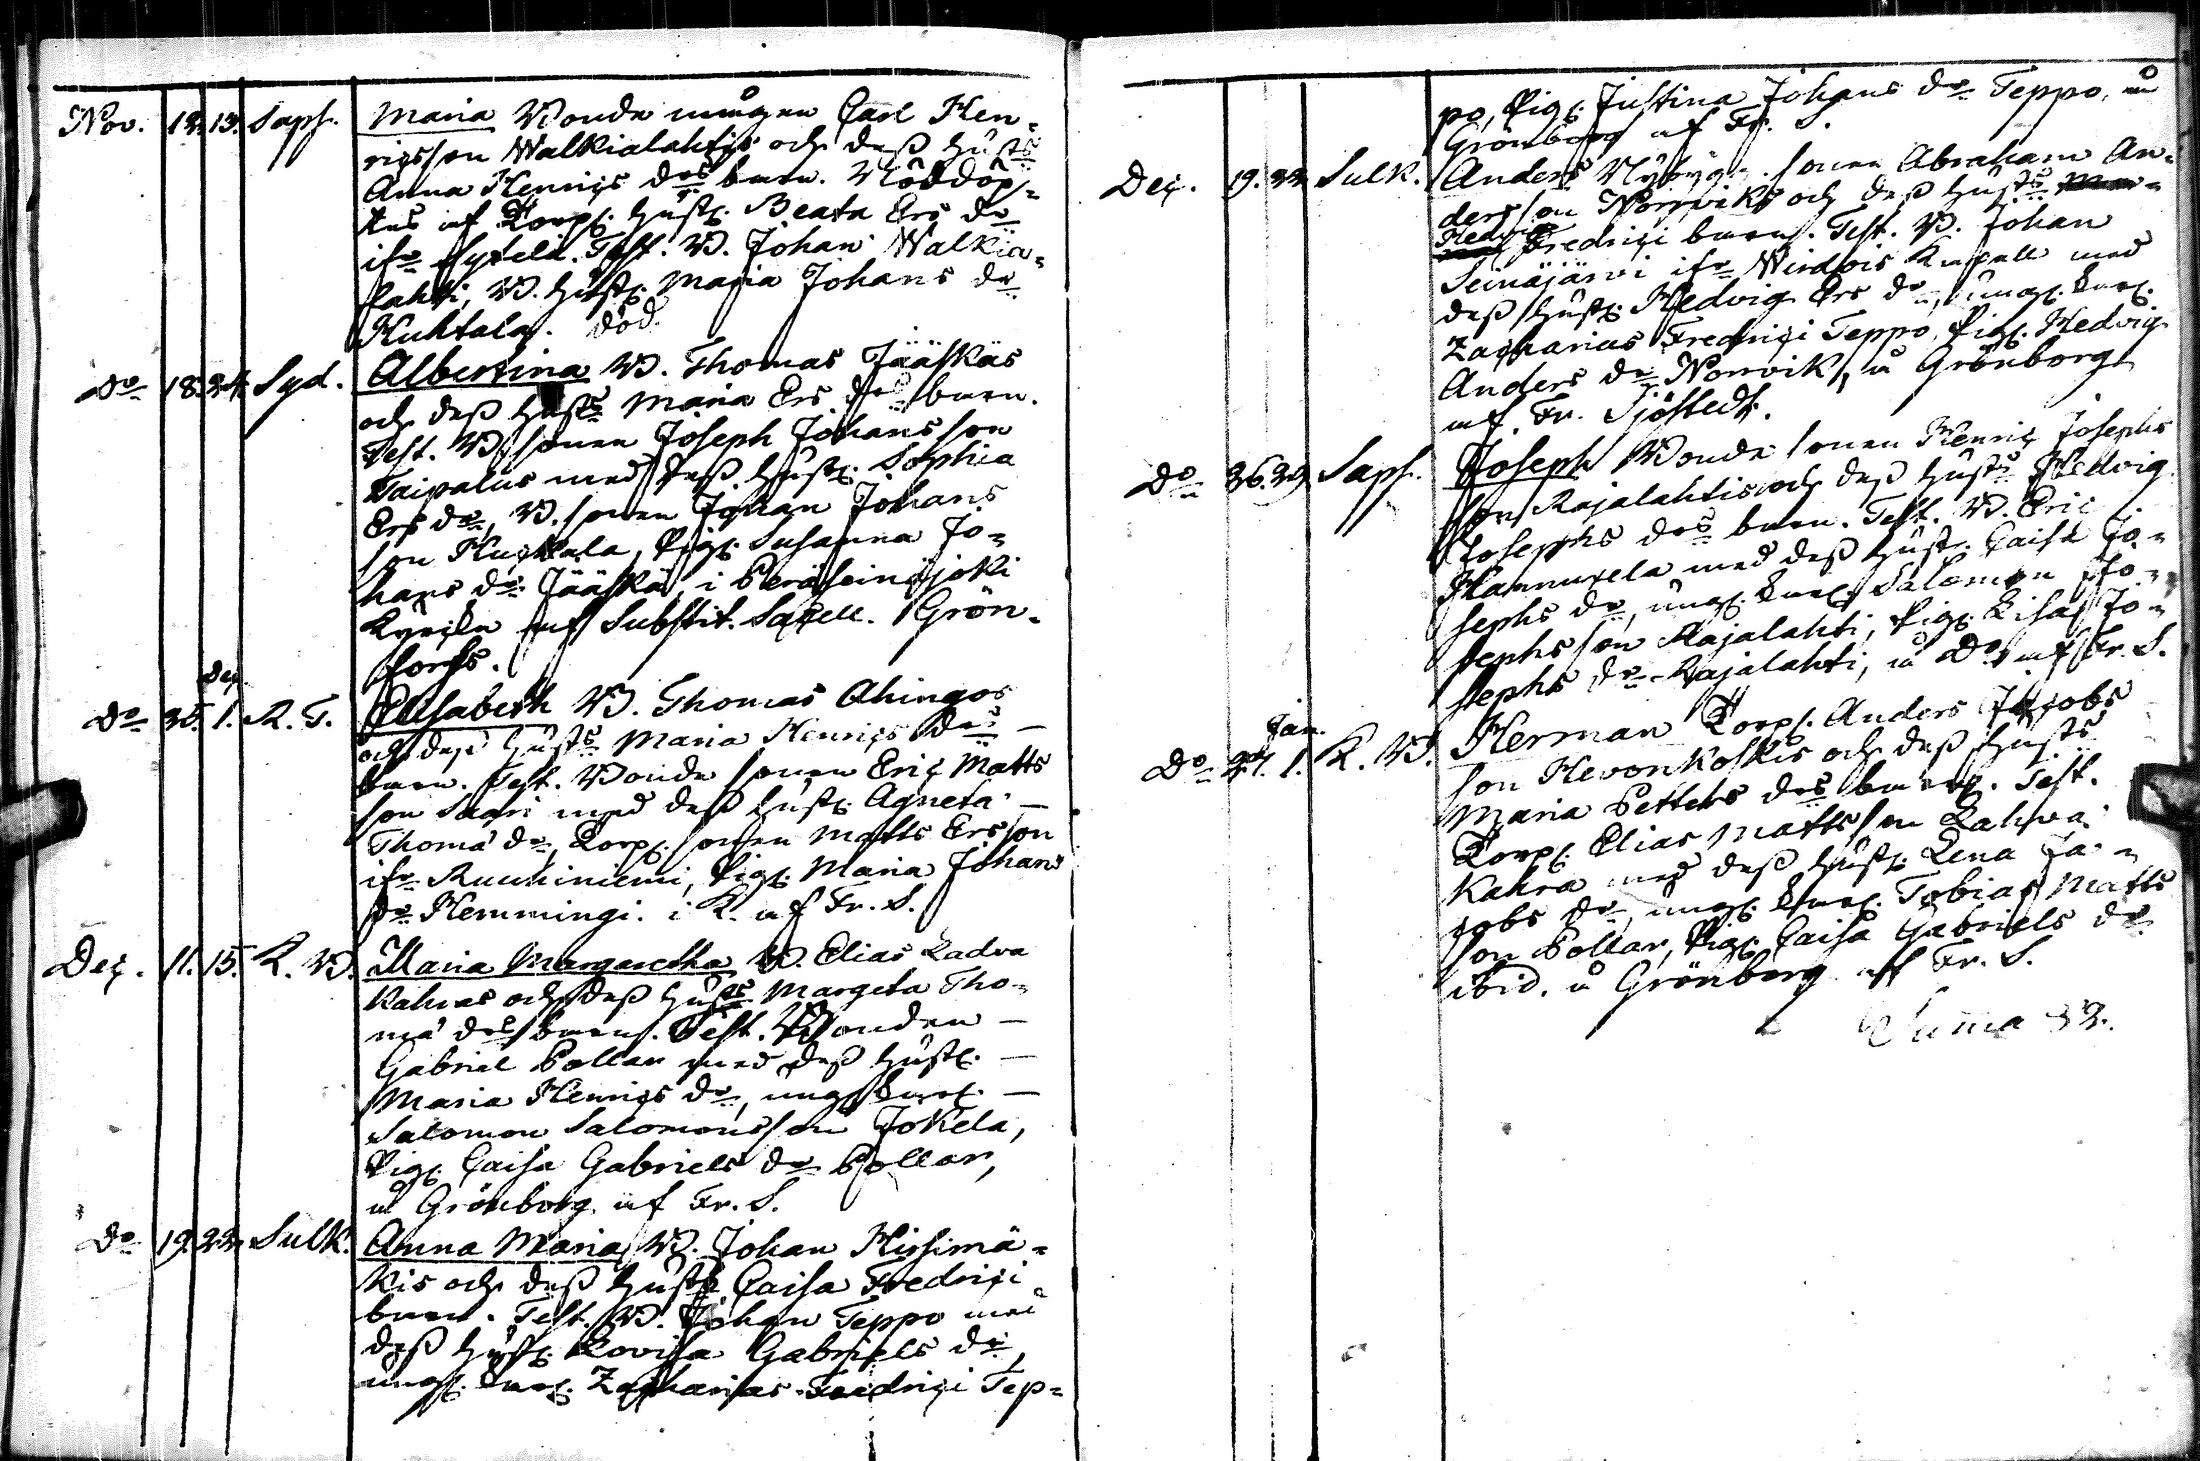 Nov. 12. 13. Saps. Maria Bonde mågen Carl Hen-
ricsson Walkialahtis och dess hust:s
Anna Henrics do:s barn. Nöddöp-
tes af Torp. hust. Beata Ers do
ifr. Test. B. Johan Walkia-
lahti, B. hust. Maria Johans do
Kuhtala. död.
Do 18. 24. Syd. Albertina B. Thomas Jääskäs
och dess hust:s Maria Ers do:s barn.
Test. B. sonen Joseph Johansson
Taipalus med dess hust. Sophia
Ers do, B. sonen Johan Johans
son Kuhtala, Pig. Susanna Jo-
hans do Jääskä, i Peräseinäjoki
Kyrcka af Substit. Sacell. Grön-
fors.
Do 25. Dec. 1. R. T. Elisabeth B. Thomas Ahingos
och dess hust:s Maria Henrics do:s
barn. Test. Bonde sonen Eric Matts
son Saari med dess hust. Agneta
Thomæ do, Torp. sonen Matts Ersson
ifr. Ruuhiniemi, Pig. Maria Johans
do Hemmingi. i K. af Fr. S.
Dec. 11. 15. K. B. Maria Margaretha B. Elias Ladva
Kahras och dess hust:s Margeta Tho-
mæ do:s barn. Test. Bonden
Gabriel Pollar med dess hust.
Maria Henrics do, ung. karl.
Salomon Salomonsson Jokela,
Pig. Caisa Gabriels do Pollar,
å Grönborg af Fr. S.
Do 19. 22. Sulk. Anna Maria B. Johan Hirsimä-
kis och dess hust:s Caisa Fredrici
barn. Test. B. Johan Teppo med
dess hust. Lovisa Gabriels do,
ung. karl. Zacharias Fredrici Tep-
po, Pig. Justina Johans do Teppo, å
Grönborg af Fr. S.
Dec. 19. 22. Sulk. Anders Nybygg. sonen Abraham An-
dersson Norrviks och dess hust:s
Hedvig Fredrici barn. Test. B. Johan
Seinäjärvi ifr. Wirdois Kapell med
dess hust. Hedvig Ers do, ung. karl.
Zacharias Fredrici Teppo, Pig. Hedvig
Anders do Norvik, å Grönborg
af Fr. Sjöstedt.
Do 26. 29. Saps. Joseph Bonde sonen Henric Josephs
son Rajalahtis och dess hust:s Hedvig
Josephs do:s barn. Test. B. Eric
Hannuxela med dess hust. Caisa Jo-
sephs do, ung. karl. Salomon Jo-
sephsson Rajalahti, Pig. Lisa Jo-
sephs do Rajalahti, å Do af Fr. S.
Do 27. Jan. 1. K. B. Herman Torp. Anders Jacobs
son Hevonkoskis och dess hust:s
Maria Petters do:s barn. Test.
Torp. Elias Mattsson Ladva
Kahra med dess hust. Lena Ja-
cobs do, ung. karl. Tobias Matts
son Pollar, Pig. Caisa Gabriels do
ibid. å Grönborg af Fr. S.
Suma 32.